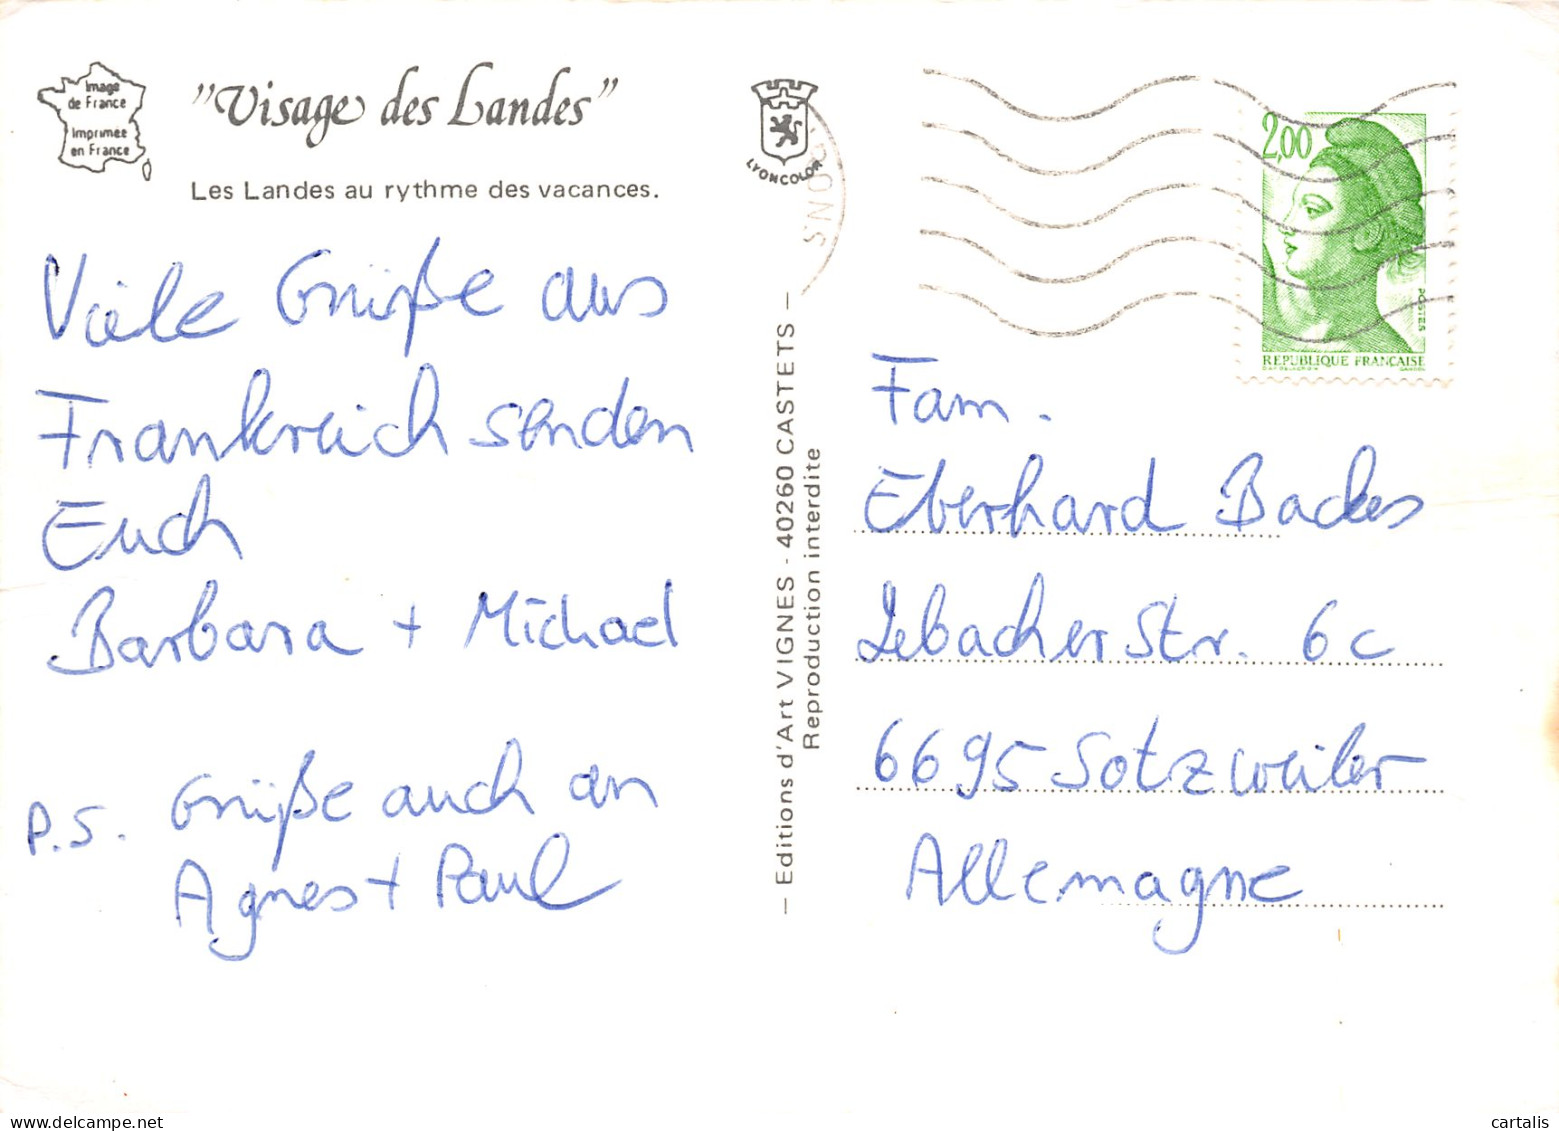 Image
de France
Imprimée
en France
"Visage des Landes"
Les Landes au rythme des vacances.
LYONCOLOR
Viele Grüße aus
Frankreich senden
Euch
Barbara + Michael
P.S. Grüße auch an
Agnes + Paul
— Editions d'Art VIGNES - 40260 CASTETS —
Reproduction interdite
2,00
POSTES
REPUBLIQUE FRANÇAISE
Fam.
Eberhard Backes
Lebacher Str. 6c
6695 Sotzweiler
Allemagne
cartalis